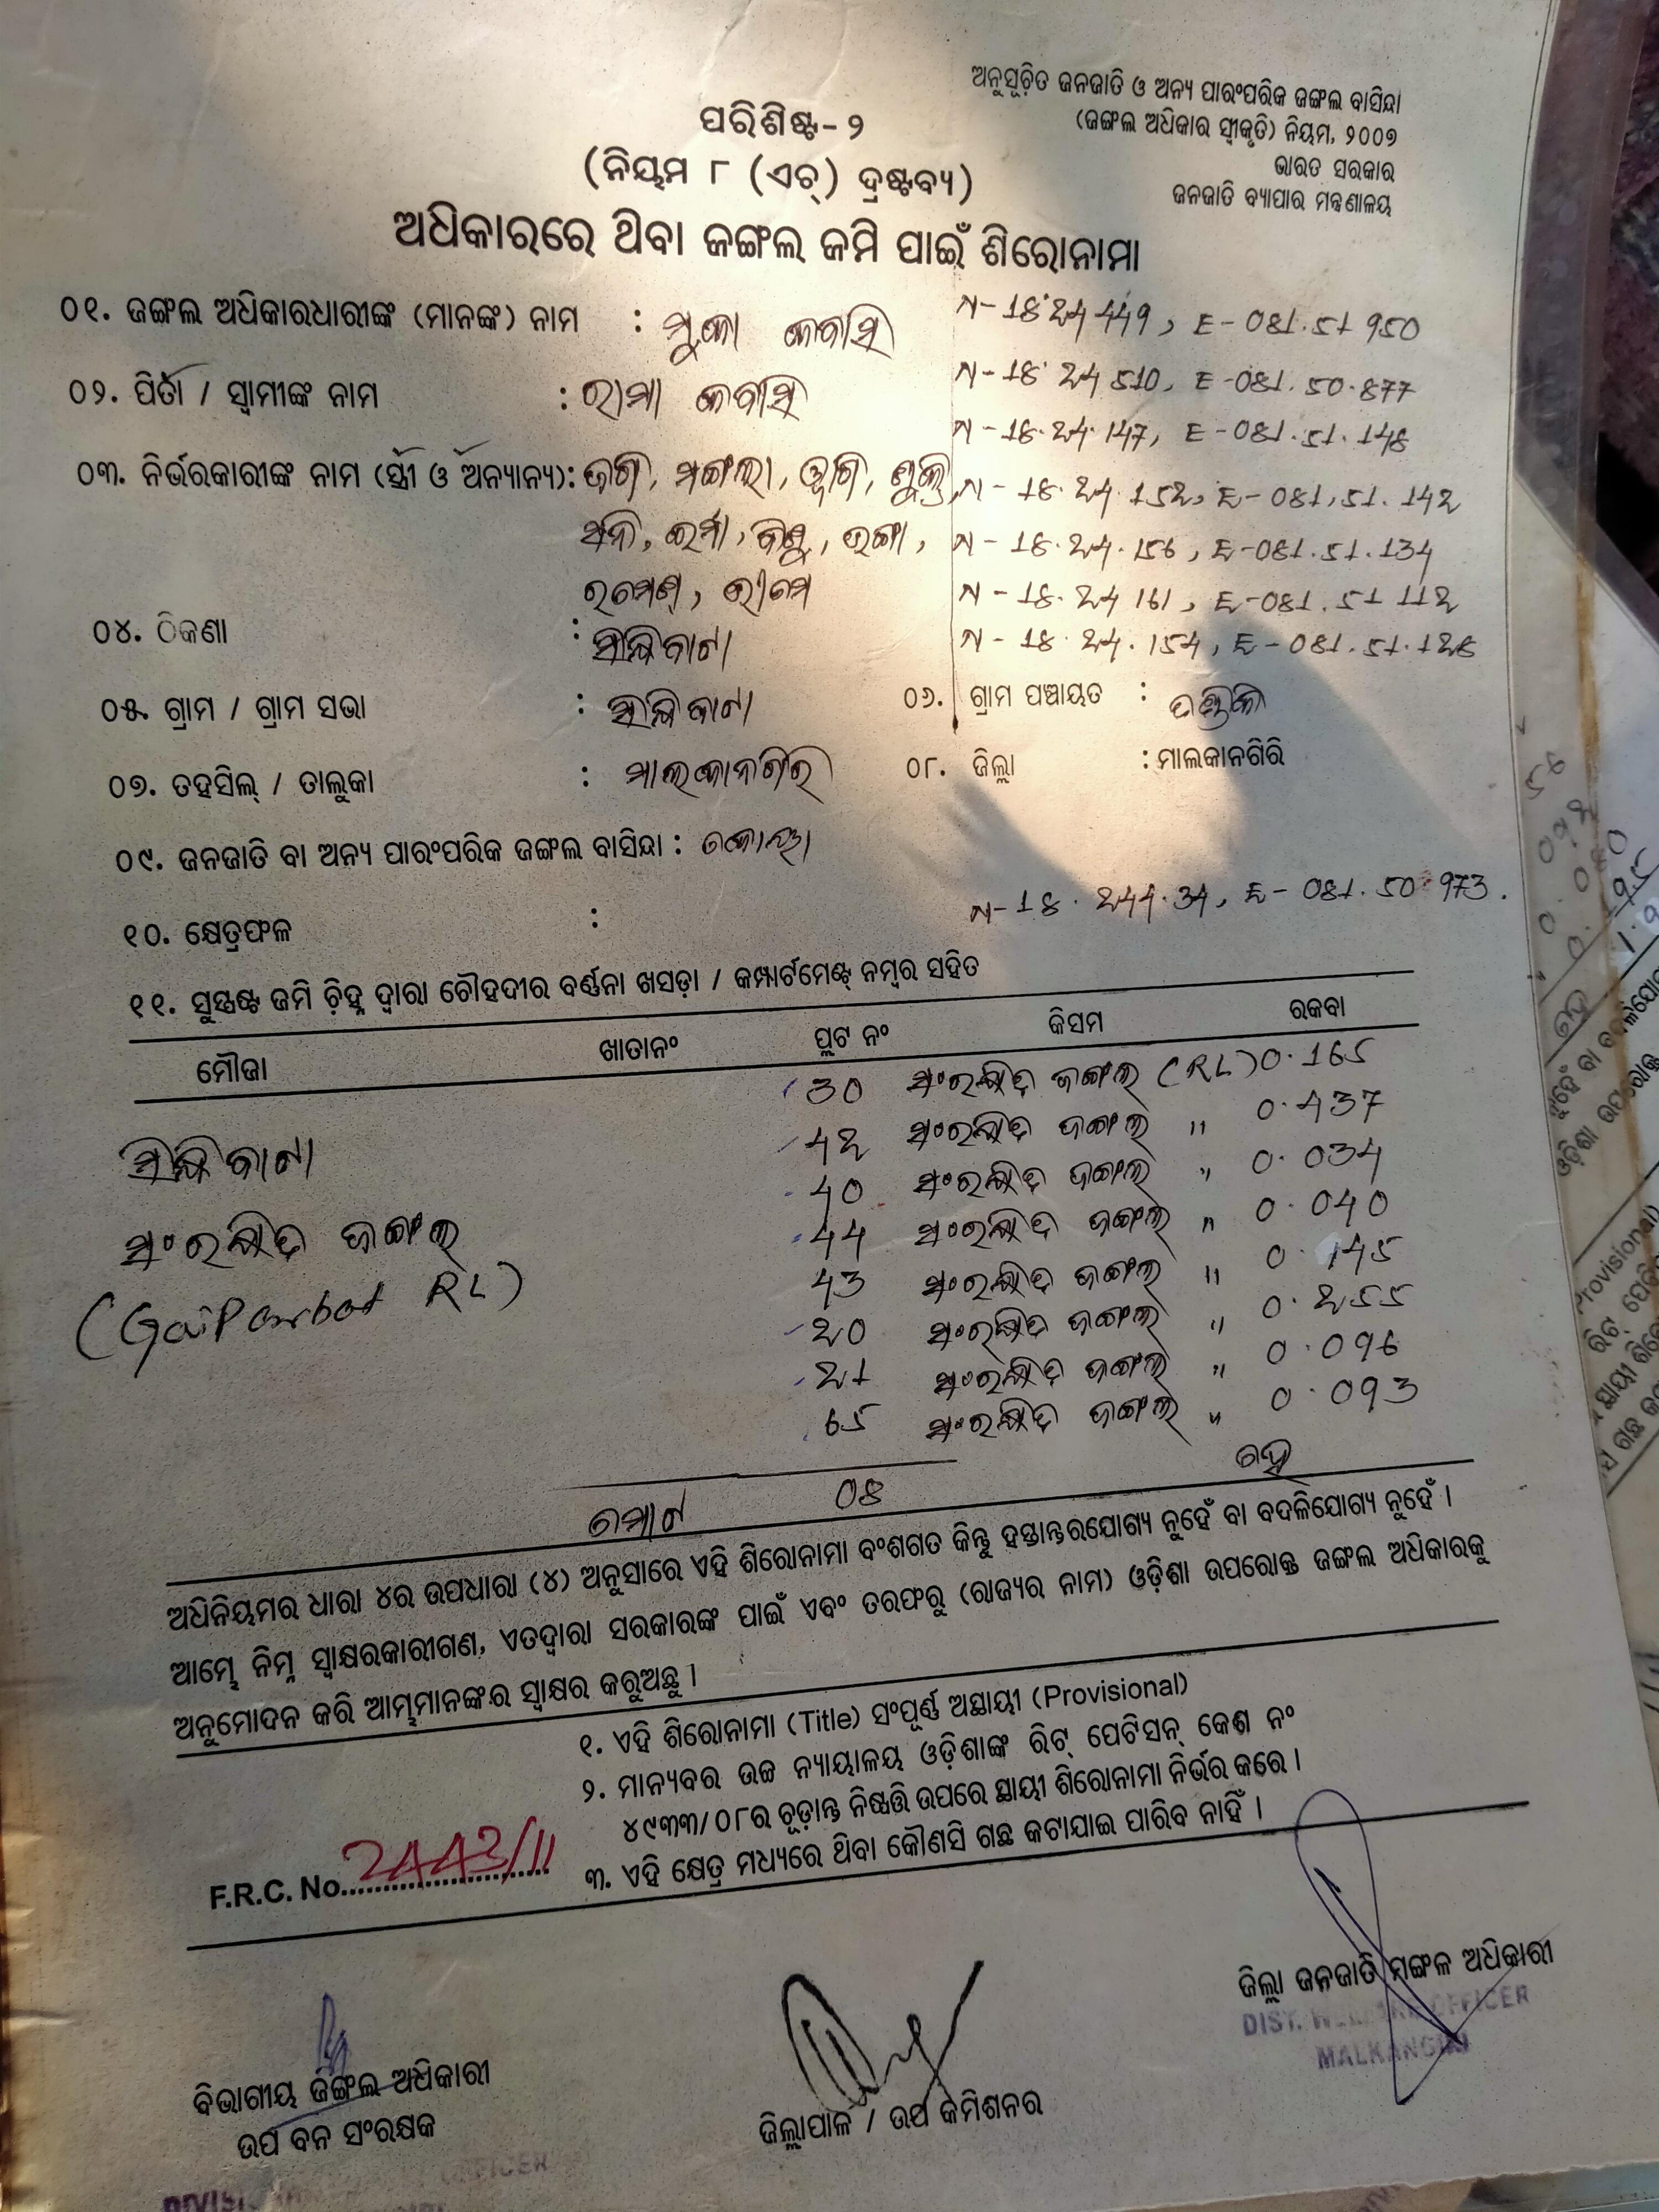 ଅନୁସୂଚିତ ଜନଜାତି ଓ ଅନ୍ୟ ପାରଂପରିକ ଜଙ୍ଗଲ ବାସିନ୍ଦା
(ଜଙ୍ଗଲ ଅଧିକାର ସ୍ୱୀକୃତି) ନିୟମ, ୨୦୦୭
ଭାରତ ସରକାର
ଜନଜାତି ବ୍ୟାପାର ମନ୍ତ୍ରଣାଳୟ
ପରିଶିଷ୍ଟ-୨
(ନିୟମ ୮ (ଏଚ୍) ଦ୍ରଷ୍ଟବ୍ୟ)
ଅଧିକାରରେ ଥିବା ଜଙ୍ଗଲ ଜମି ପାଇଁ ଶିରୋନାମା
୦୧. ଜଙ୍ଗଲ ଅଧିକାରଧାରୀଙ୍କ (ମାନଙ୍କ) ନାମ : ମୁକା କେବାସି
N-18.24 449, E-081.51 950
୦୨. ପିତା / ସ୍ୱାମୀଙ୍କ ନାମ : ରାମା କେବାସି
N-18. 24 510, E-081. 50.877
N-18.24.147, E-081.51.148
୦୩. ନିର୍ଭରକାରୀଙ୍କ ନାମ (ସ୍ତ୍ରୀ ଓ ଅନ୍ୟାନ୍ୟ): ମଙ୍ଗଲା,
N-18.24.152, E-081.51.142
N-18.24.156, E-081.51.134
N-18.24 161, E-081.51 112
୦୪. ଠିକଣା :
N-18.24.154, E-081.51.128
୦୫. ଗ୍ରାମ / ଗ୍ରାମ ସଭା : ୦୬. ଗ୍ରାମ ପଞ୍ଚାୟତ :
୦୭. ତହସିଲ୍ / ତାଲୁକା : ମାଲକାନଗିରି ୦୮. ଜିଲ୍ଲା : ମାଲକାନଗିରି
୦୯. ଜନଜାତି ବା ଅନ୍ୟ ପାରଂପରିକ ଜଙ୍ଗଲ ବାସିନ୍ଦା : କୋୟା
୧୦. କ୍ଷେତ୍ରଫଳ : N-18. 244.34, E-081.50.973.
୧୧. ସୁସ୍ପଷ୍ଟ ଜମି ଚିହ୍ନ ଦ୍ୱାରା ଚୌହଦୀର ବର୍ଣ୍ଣନା ଖସଡ଼ା / କମ୍ପାର୍ଟମେଣ୍ଟ୍ ନମ୍ବର ସହିତ
ମୌଜା ଖାତାନଂ ପ୍ଲଟ ନଂ କିସମ ରକବା
30 ସଂରକ୍ଷିତ ଜଙ୍ଗଲ (RL) 0.165
42 ସଂରକ୍ଷିତ ଜଙ୍ଗଲ " 0.437
40 ସଂରକ୍ଷିତ ଜଙ୍ଗଲ " 0.034
ସଂରକ୍ଷିତ ଜଙ୍ଗଲ 44 ସଂରକ୍ଷିତ ଜଙ୍ଗଲ " 0.040
43 ସଂରକ୍ଷିତ ଜଙ୍ଗଲ " 0.145
(GaiParbat RL) 20 ସଂରକ୍ଷିତ ଜଙ୍ଗଲ " 0.255
21 ସଂରକ୍ଷିତ ଜଙ୍ଗଲ " 0.096
65 ସଂରକ୍ଷିତ ଜଙ୍ଗଲ " 0.093
ମୋଟ 08
ଅଧିନିୟମର ଧାରା ୪ର ଉପଧାରା (୪) ଅନୁସାରେ ଏହି ଶିରୋନାମା ବଂଶଗତ କିନ୍ତୁ ହସ୍ତାନ୍ତରଯୋଗ୍ୟ ନୁହେଁ ବା ବଦଳିଯୋଗ୍ୟ ନୁହେଁ ।
ଆମ୍ଭେ ନିମ୍ନ ସ୍ୱାକ୍ଷରକାରୀଗଣ, ଏତଦ୍ୱାରା ସରକାରଙ୍କ ପାଇଁ ଏବଂ ତରଫରୁ (ରାଜ୍ୟର ନାମ) ଓଡ଼ିଶା ଉପରୋକ୍ତ ଜଙ୍ଗଲ ଅଧିକାରକୁ
ଅନୁମୋଦନ କରି ଆମ୍ଭମାନଙ୍କର ସ୍ୱାକ୍ଷର କରୁଅଛୁ ।
୧. ଏହି ଶିରୋନାମା (Title) ସଂପୂର୍ଣ୍ଣ ଅସ୍ଥାୟୀ (Provisional)
୨. ମାନ୍ୟବର ଉଚ୍ଚ ନ୍ୟାୟାଳୟ ଓଡ଼ିଶାଙ୍କ ରିଟ୍ ପେଟିସନ୍ କେଶ ନଂ
୪୯୩୩/୦୮ର ଚୂଡ଼ାନ୍ତ ନିଷ୍ପତ୍ତି ଉପରେ ସ୍ଥାୟୀ ଶିରୋନାମା ନିର୍ଭର କରେ ।
୩. ଏହି କ୍ଷେତ୍ର ମଧ୍ୟରେ ଥିବା କୌଣସି ଗଛ କଟାଯାଇ ପାରିବ ନାହିଁ ।
F.R.C. No. 2443/11
ଜିଲ୍ଲା ଜନଜାତି ମଙ୍ଗଳ ଅଧିକାରୀ
DIST. WELFARE OFFICER
MALKANGIRI
ବିଭାଗୀୟ ଜଙ୍ଗଲ ଅଧିକାରୀ
ଉପ ବନ ସଂରକ୍ଷକ
ଜିଲ୍ଲାପାଳ / ଉପ କମିଶନର